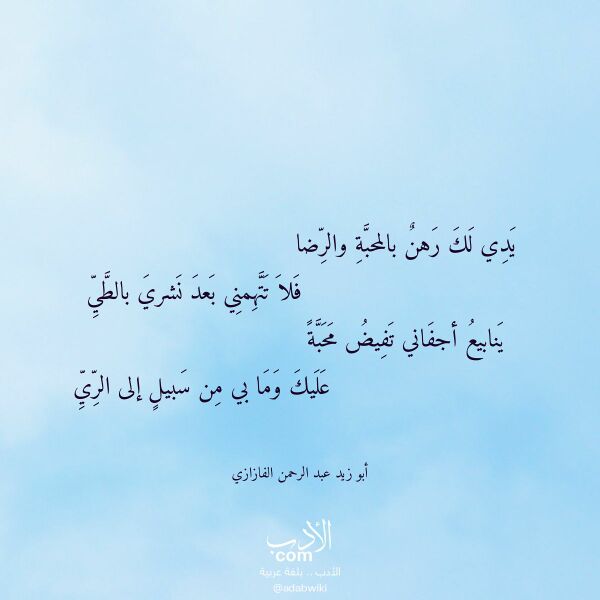 يَدِي لَكَ رَهنٌ بالمحبَّةِ والرِّضا
فَلاَ تَتَّهِمنِي بَعدَ نَشريَ بالطَّيِّ
يَنابيعُ أجفَاني تَفِيضُ مَحَبَّةً
عَلَيكَ وَمَا بي مِن سَبيلٍ إلى الرِّيِّ
أبو زيد عبد الرحمن الفازازي
الأدب
.com
الأدب .. بلغة عربية
@adabwiki